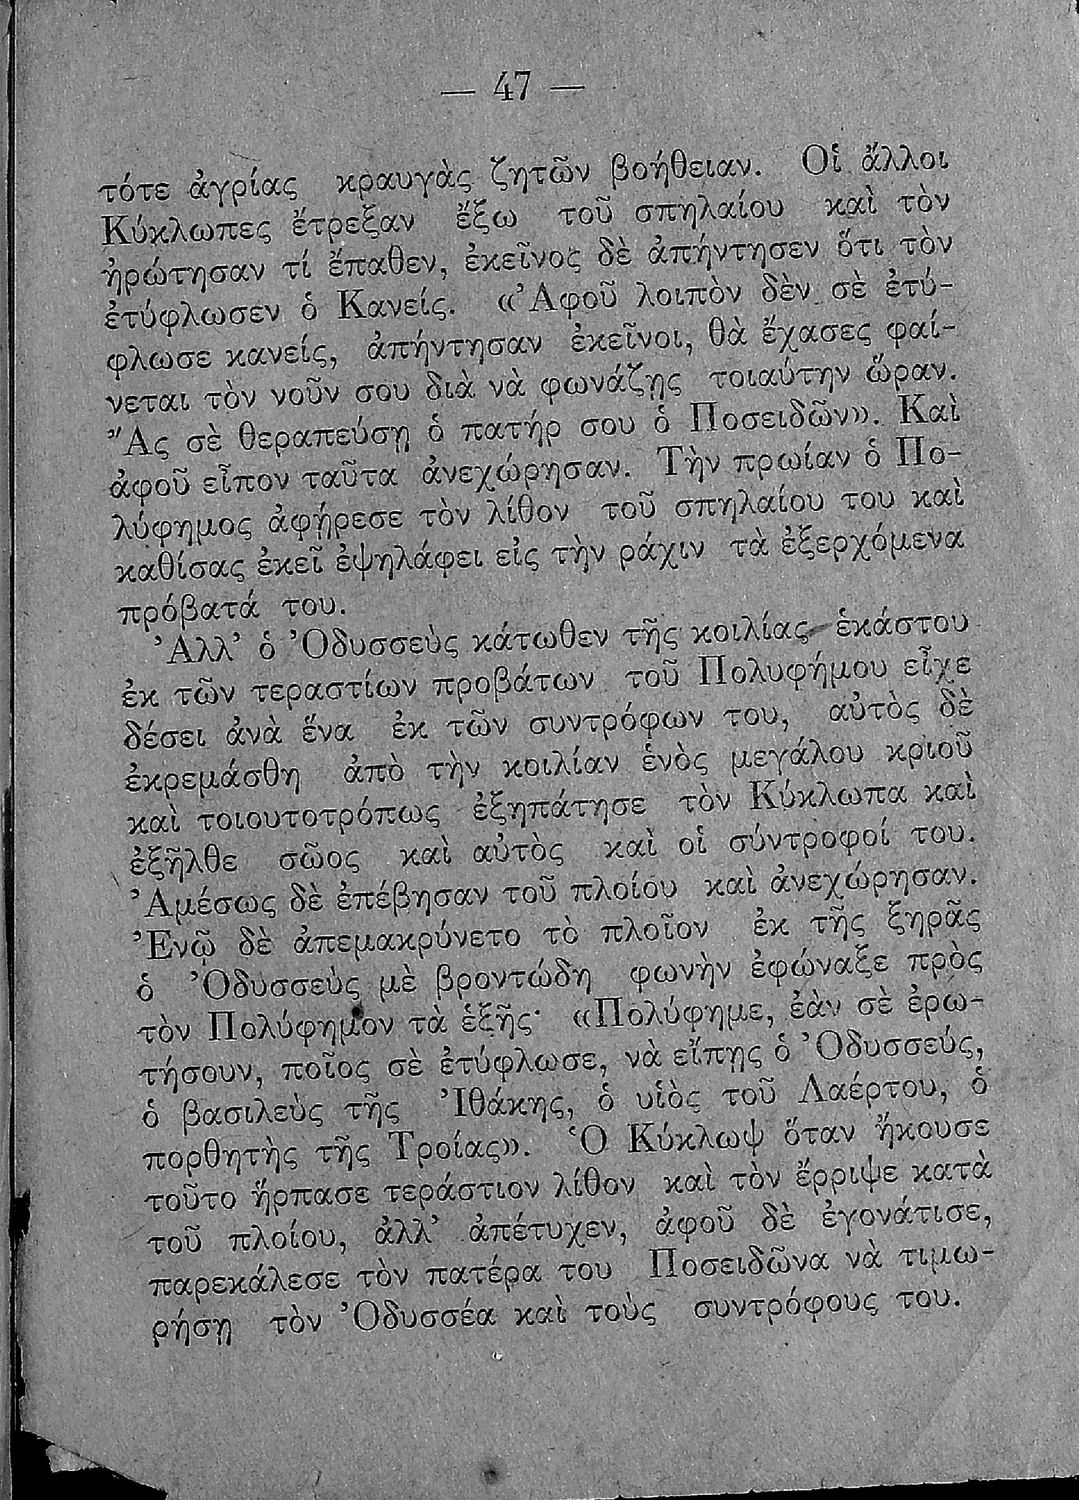 — 47 —
τότε ἀγρίας κραυγὰς ζητῶν βοήθειαν. Οἱ ἄλλοι
Κύκλωπες ἔτρεξαν ἔξω τοῦ σπηλαίου καὶ τὸν
ἠρώτησαν τί ἔπαθεν, ἐκεῖνος δὲ ἀπήντησεν ὅτι τὸν
ἐτύφλωσεν ὁ Κανείς. «Ἀφοῦ λοιπὸν δὲν σὲ ἐτύ-
φλωσε κανείς, ἀπήντησαν ἐκεῖνοι, θὰ ἔχασες φαί-
νεται τὸν νοῦν σου διὰ νὰ φωνάζῃς τοιαύτην ὥραν.
Ἂς σὲ θεραπεύσῃ ὁ πατήρ σου ὁ Ποσειδῶν». Καὶ
ἀφοῦ εἶπον ταῦτα ἀνεχώρησαν. Τὴν πρωίαν ὁ Πο-
λύφημος ἀφῄρεσε τὸν λίθον τοῦ σπηλαίου του καὶ
καθίσας ἐκεῖ ἐψηλάφει εἰς τὴν ράχιν τὰ ἐξερχόμενα
πρόβατά του.
Ἀλλ' ὁ Ὀδυσσεὺς κάτωθεν τῆς κοιλίας ἑκάστου
ἐκ τῶν τεραστίων προβάτων τοῦ Πολυφήμου εἶχε
δέσει ἀνὰ ἕνα ἐκ τῶν συντρόφων του, αὐτὸς δὲ
ἐκρεμάσθη ἀπὸ τὴν κοιλίαν ἑνὸς μεγάλου κριοῦ
καὶ τοιουτοτρόπως ἐξηπάτησε τὸν Κύκλωπα καὶ
ἐξῆλθε σῶος καὶ αὐτὸς καὶ οἱ σύντροφοί του.
Ἀμέσως δὲ ἐπέβησαν τοῦ πλοίου καὶ ἀνεχώρησαν.
Ἐνῷ δὲ ἀπεμακρύνετο τὸ πλοῖον ἐκ τῆς ξηρᾶς
ὁ Ὀδυσσεὺς μὲ βροντώδη φωνὴν ἐφώναξε πρὸς
τὸν Πολύφημον τὰ ἑξῆς· «Πολύφημε, ἐὰν σὲ ἐρω-
τήσουν, ποῖος σὲ ἐτύφλωσε, νὰ εἴπῃς ὁ Ὀδυσσεύς,
ὁ βασιλεὺς τῆς Ἰθάκης, ὁ υἱὸς τοῦ Λαέρτου, ὁ
πορθητὴς τῆς Τροίας». Ὁ Κύκλωψ ὅταν ἤκουσε
τοῦτο ἥρπασε τεράστιον λίθον καὶ τὸν ἔρριψε κατὰ
τοῦ πλοίου, ἀλλ' ἀπέτυχεν, ἀφοῦ δὲ ἐγονάτισε,
παρεκάλεσε τὸν πατέρα του Ποσειδῶνα νὰ τιμω-
ρήσῃ τὸν Ὀδυσσέα καὶ τοὺς συντρόφους του.